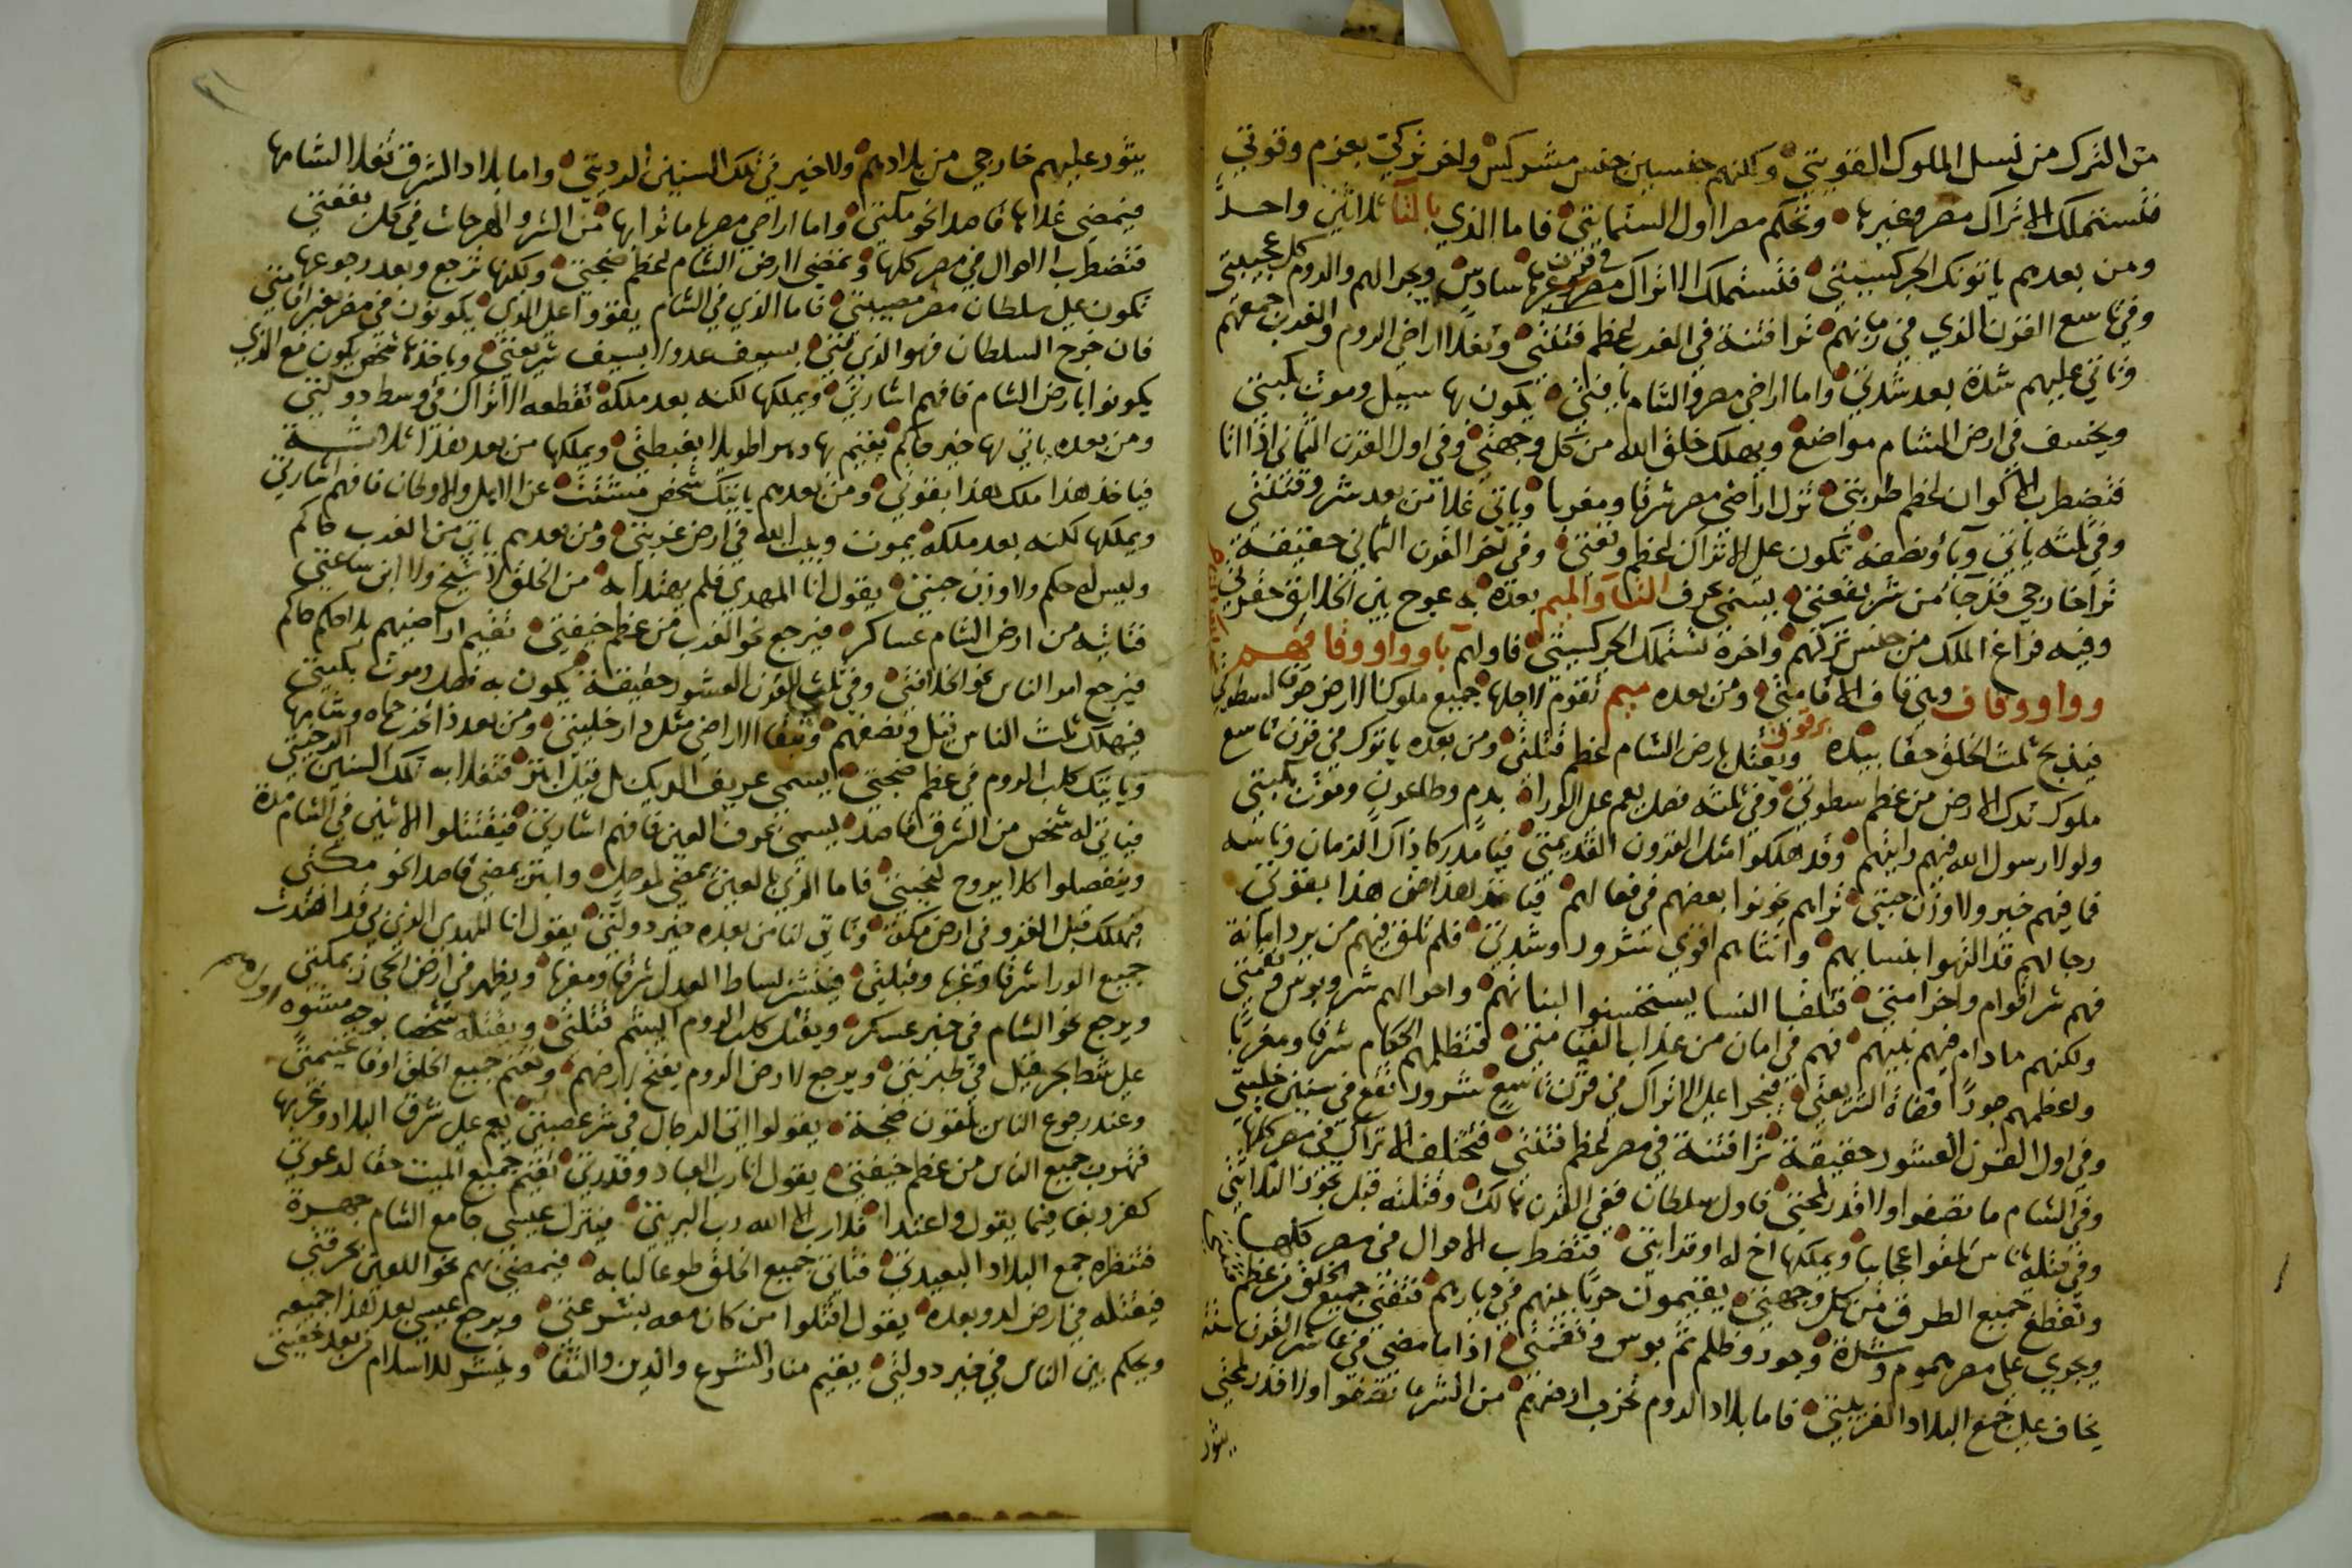 من الترك من نسل الملوك القويتي ولكنهم جنسين جنس مشركس واخر تركي بعزم وقوتي
فتستملك الاتراك مصر وغيرها وتحكم مصرا اول الستمايتي فاما الذي بالتا ثلاثين واحد
ومن بعدهم ياتونك الجركسيتي فتستملك الاتراك مصر وغربها في قرن سادس ويجرا لهم والروم كل عجيبتي
وفي تاسع القرن الذي في زمانهم ترا فتنة في الغرب لعظم فتنتي وتغلا اراضي الروم والغرب جمعهم
وتاتي عليهم شدة بعد شدتي واما اراضي مصر والشام يكون بها سيل وموت بكبتي
ويخسف في ارض الشام مواضع ويهلك خلق الله من كل وجهتي وفي اول القرن الثماني اذا اتا
فتضطرب الاكوان لعظم طربتي تزل اراضي مصر شرقا ومغربا وياتي غلا من بعد شر وفتنتي
وفي ثلثه ياتي وباونصفه تكون على الاتراك لعظم وقعتي وفي اخر القرن الثماني حقيقة
ترا خارجي قد جا من شر بقعتي يسمى بحرف التا والميم بعده به عوج بين الخلايق
وفيه فراغ الملك من جنس تركهم واخره تستملك الجركسيتي فاولهم باوواو وقافهم
وواو وقاف وبن قاف الاقامتي ومن بعده ميم تقوم لاجلها جميع ملوك الارض خوفا لسطوتي
فيذبح ثلث الخلق حقا بيده برقوق ويقتل بارض الشام لعظم فتنتي ومن بعده ياتوك في قرن تاسع
ملوك تدك الارض من عظم سطوتي وفي ثلثه فصل يعم على الورا بدم وطاعون وموت بكبتي
ولولا رسول الله فيهم رايتهم وقد هلكوا مثل القرون القديمتي فيا مدركا ذاك الزمان وناسه
فما فيهم خير ولا وزن حبتي تراهم يخونوا بعضهم في فعالهم
رجالهم قد التهوا بنسايهم وانثاهم اقوى شرور وشدتي فلم تلق فيهم من يرد امانة
فهم شر اقوام واخر امتي فتلقا النسا يستخسنوا لبناتهم واحوالهم شر وبوس ونقمتي
ولكنهم ما دام فيهم نبيهم فهم في امان من عذاب القيامتي فتظلمهم الحكام شرقا ومغربا
واعظمهم جورا قضاة الشريعتي فيجرا على الاتراك في قرن تاسع شرور تقع في سنين خليتي
وفي اول القرن العشور حقيقة ترا فتنة في مصر لعظم فتنتي فتختلف الاتراك في مصر كلها
وفي الشام ما تصفوا ولا اقدر لمحنتي فاول سلطان ففي القرن مالك وقتلته قبل
وفي قتله ناس تلقوا عجايبا ويملكها اخ له او قرابتي فتضطرب الاحوال في مصر كلها
وتقطع جميع الطرق من كل وجهتي يقيمون حربا بينهم في ديارهم فتفنى جميع الخلق من عظم
ويجري على مصر هموم وشدة وجور وظلم ثم بوس ونقمتي اذا ما مضى في عاشر القرن
يخاف على جمع البلاد الغريبتي فاما بلاد الروم تخرب ارضهم من الشر ما تصفوا ولا اقدر لمحنتي
يثور
يثور عليهم خارجي من بلادهم ولا خير في تلك السنين الرديتي واما بلاد الشرق تغلا الشامها
فيمضي غلاها قاصدا نحو مكتي واما اراضي مصرها ما ترا بها من الشر والهرجات في كل بقعتي
فتضطرب الاهوال في مصر كلها وتمضي لارض الشام لعظم ضجتي ولكنها ترجع وبعد رجوعها
تكون على سلطان مصر مصيبتي فاما الذي في الشام يقووا على الذي يكونون في مصر بغير اقامتي
فان خرج السلطان فهو الذي لتي بسيف عدو لا بسيف شريعتي وياخذها شخص يكون مع الذي
يكونوا بارض الشام فافهم اشارتي ويملكها لكنه بعد ملكه تقطعه الاتراك في وسط دولتي
ومن بعده ياتي لها خير حاكم يقيم بها دهرا طويلا بغبطتي ويملكها من بعد هذا ثلاثة
فياخذ هذا ملك هذا بقوتي ومن بعدهم ياتيك شخص مشتت عن الاهل والاوطان فافهم اشارتي
ويملكها لكنه بعد ملكه يموت وبيت الله في ارض غربتي ومن بعدهم ياتي من الغرب حاكم
وليس له حكم ولا وزن حبتي يقول انا المهدي فلم يهتدا به من الخلق لا شيخ ولا ابن ساعتي
فتاتيه من ارض الشام عساكر فيرجع نحو الغرب من عظم خيفتي تقيم اراضيهم بلا حكم حاكم
فيرجع امر الناس نحو الخلافتي وفي ثلث القرن العشور حقيقة يكون به فصل وموت بكبتي
فيهلك ثلث الناس قتل ونصفهم وتبقا الاراضي مثل دار خليتي ومن بعد ذا تخذ حماه وشامها
وياتيك كلب الروم في عظم ضجتي يسمى عريف الديك فتغلا به تلك السنين الرجيتي
فياتي له شخص من الشرق قاصد يسمى بحرف العين فافهم اشارتي فيقتتلوا الاثنين في الشام مدة
وينفصلوا كلا يروح لنجيتي فاما الذي بالعين يمضي لموصل وابتر يمضي قاصدا نحو مكتي
فيهلك قبل الغزو في ارض مكة وتاتي لناس بعده خير دولتي يقول انا المهدي الذي بي قد اهتدت
جميع الورا شرقا وغربا وقبلتي فينشر بساط العدل شرقا ومغربا ويظهر في ارض الحجاز بمكتي
ويرجع نحو الشام في خير عسكر ويقتل كلب الروم البشم قتلتي ويقتله شخصا بوجه مشوه
على شط بحر قيل في طبريتي ويرجع لارض الروم يفتح ارضهم وتغنم جميع الخلق اوفا غنيمتي
وعند رجوع الناس تلقون ضجة يقولوا اتى الدجال في شر عصبتي يعم على شرق البلاد وغربها
فتهرب جميع الناس من عظم خيفتي يقول انا رب العباد وقدرتي تقيم جميع الميت حقا لدعوتي
كفر وبغا فيما يقول واعتدا فلا رب الا الله رب البريتي فينزل عيسى جامع الشام جهرة
فتنظره جمع البلاد البعيدتي فتاتي جميع الخلق طوعا لبابه فيمضي بهم نحو اللعين بحرقتي
فيقتله في ارض لد وبعده يقول اقتلوا من كان معه بشرعتي ويرجع عيسى بعد هذا جميعه
ويحكم بين الناس في خير دولتي يقيم منار الشرع والدين والتقا وينشر للاسلام من بعد